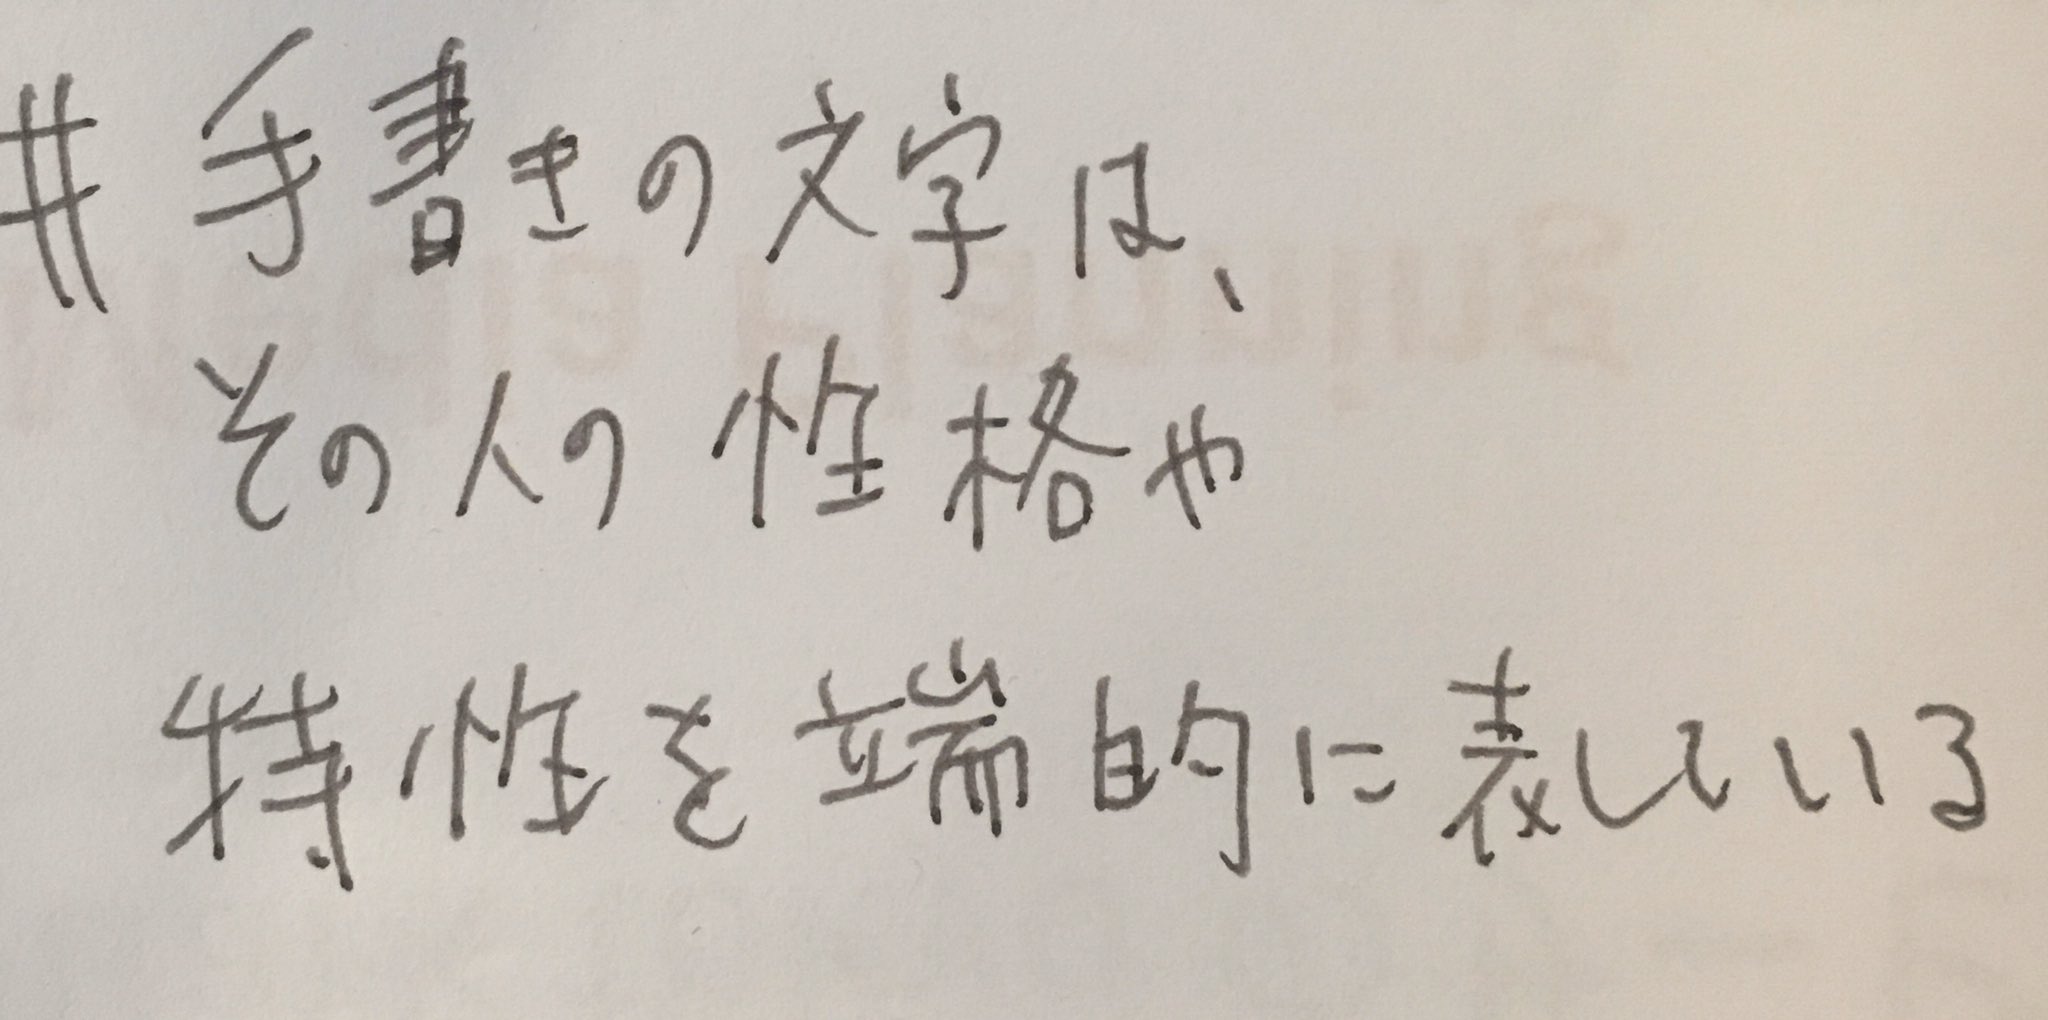 # 手書きの文字は、
その人の性格や
特性を端的に表している